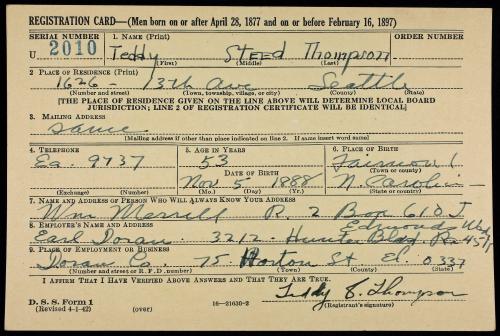 REGISTRATION CARD—(Men born on or after April 28, 1877 and on or before February 16, 1897)
SERIAL NUMBER 1. NAME (Print) ORDER NUMBER
U 2010 Teddy Steed Thompson
(First) (Middle) (Last)
2. PLACE OF RESIDENCE (Print)
1626 - 13th Ave Seattle
(Number and street) (Town, township, village, or city) (County) (State)
[THE PLACE OF RESIDENCE GIVEN ON THE LINE ABOVE WILL DETERMINE LOCAL BOARD
JURISDICTION; LINE 2 OF REGISTRATION CERTIFICATE WILL BE IDENTICAL]
3. MAILING ADDRESS
same
(Mailing address if other than place indicated on line 2. If same insert word same)
4. TELEPHONE 5. AGE IN YEARS 6. PLACE OF BIRTH
Ea. 9737 53
DATE OF BIRTH (Town or county)
Nov 5 1888 N. Carolin
(Exchange) (Number) (Mo.) (Day) (Yr.) (State or country)
7. NAME AND ADDRESS OF PERSON WHO WILL ALWAYS KNOW YOUR ADDRESS
Wm Merrill R. 2 Box 610 J
Edmonds
8. EMPLOYER'S NAME AND ADDRESS
Earl Doran 3212 - Hunter Bldg
9. PLACE OF EMPLOYMENT OR BUSINESS
Doran Co. 75 Horton St El. 0337
(Number and street or R. F. D. number) (Town) (County) (State)
I AFFIRM THAT I HAVE VERIFIED ABOVE ANSWERS AND THAT THEY ARE TRUE.
Teddy S. Thompson
D. S. S. Form 1
(Revised 4-1-42) (over) 16—21630-2